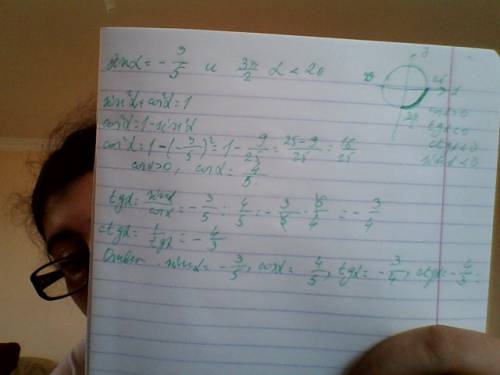 sinα = -3/5 и 3π/2 < α < 2π
sin²α + cos²α = 1
cos²α = 1 - sin²α
cos²α = 1 - (-3/5)² = 1 - 9/25 = (25-9)/25 = 16/25
cosα > 0, cosα = 4/5.
tgα = sinα/cosα = -3/5 : 4/5 = -3/5 · 5/4 = -3/4
ctgα = 1/tgα = -4/3
Ответ. sinα = -3/5, cosα = 4/5, tgα = -3/4, ctgα = -4/3.
cosα > 0
tgα < 0
ctgα < 0
sinα < 0